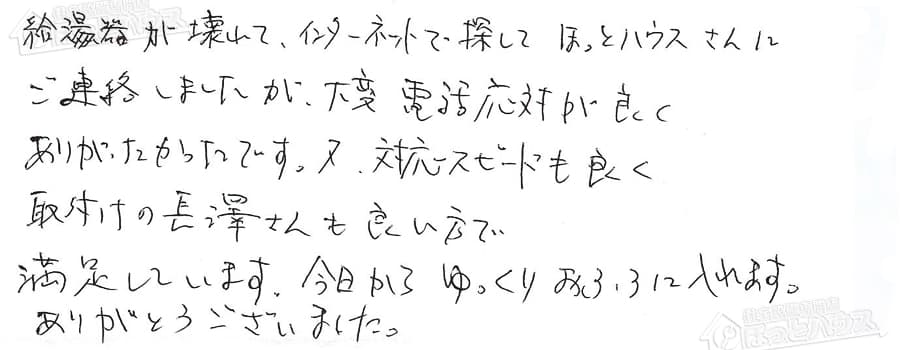 給湯器が壊れて、インターネットで探して ほっとハウスさんに
ご連絡しましたが、大変 電話応対が良く
ありがたかったです。又、対応スピードも良く
取付けの長澤さんも良い方で
満足しています。今日からゆっくりおふろに入れます。
ありがとうございました。
ほっとハウス